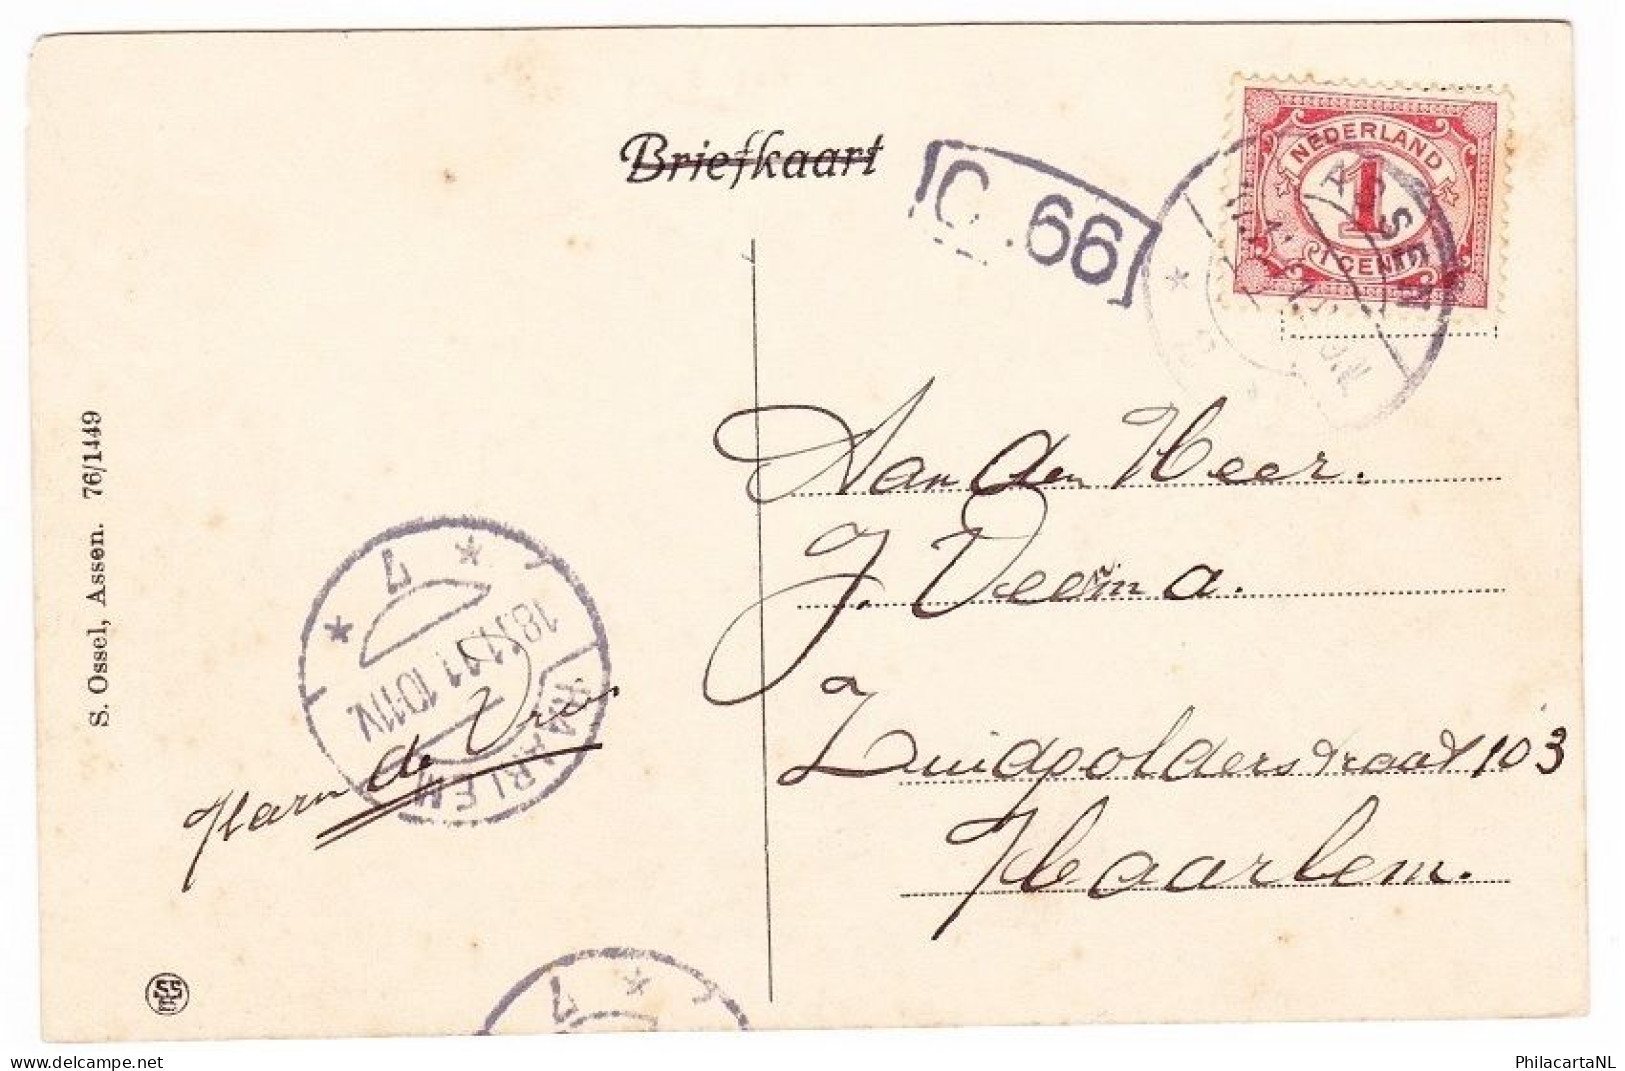 Briefkaart
C.66
NEDERLAND
1
1 CENT
ASSEN
Aan den Heer.
J. Veenma.
Zuidpolderstraat 103
Haarlem.
S. Ossel, Assen. 76/1449
7
18.11.11 10-11V.
HAARLEM
Harm de Vries
7
PhilacartaNL